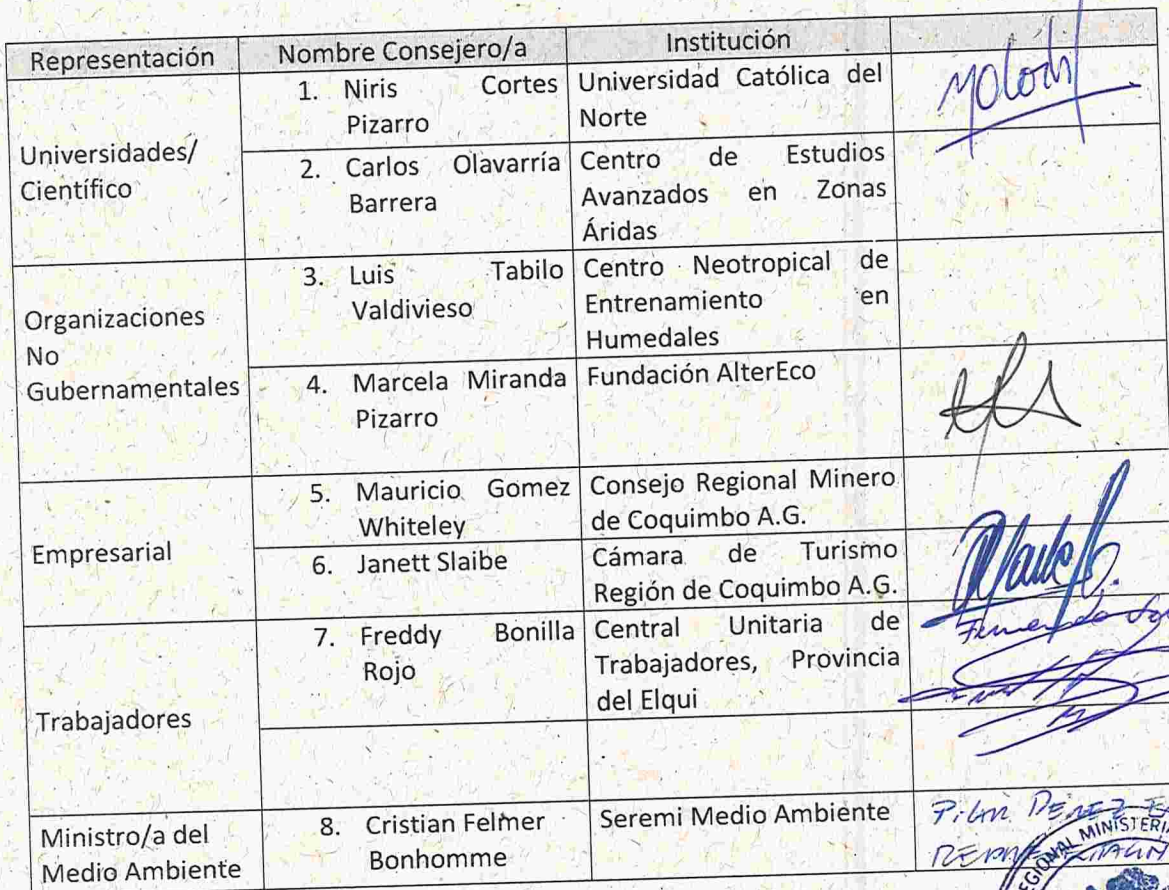 Representación Nombre Consejero/a Institución
Universidades/
Científico
1. Niris Cortes
Pizarro
Universidad Católica del
Norte
2. Carlos Olavarría
Barrera
Centro de Estudios
Avanzados en Zonas
Áridas
Organizaciones
No
Gubernamentales
3. Luis Tabilo
Valdivieso
Centro Neotropical de
Entrenamiento en
Humedales
4. Marcela Miranda
Pizarro
Fundación AlterEco
Empresarial
5. Mauricio Gomez
Whiteley
Consejo Regional Minero
de Coquimbo A.G.
6. Janett Slaibe
Cámara de Turismo
Región de Coquimbo A.G.
Trabajadores
7. Freddy Bonilla
Rojo
Central Unitaria de
Trabajadores, Provincia
del Elqui
Fernando
Ministro/a del
Medio Ambiente
8. Cristian Felmer
Bonhomme
Seremi Medio Ambiente
PILAR PEREZ
REGIONAL MINISTERIA